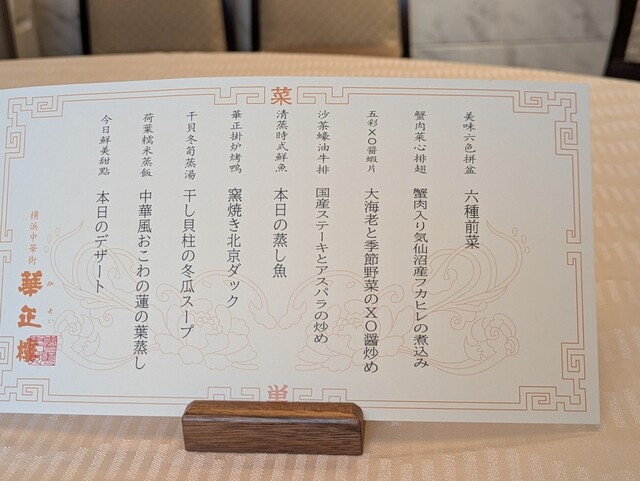 菜
美味六色拼盆 六種前菜
蟹肉菜心排翅 蟹肉入り気仙沼産フカヒレの煮込み
五彩XO醤蝦片 大海老と季節野菜のXO醤炒め
沙茶蠔油牛排 国産ステーキとアスパラの炒め
清蒸時式鮮魚 本日の蒸し魚
華正掛炉烤鴨 窯焼き北京ダック
干貝冬筍蒸湯 干し貝柱の冬瓜スープ
荷葉糯米蒸飯 中華風おこわの蓮の葉蒸し
今日鮮美甜點 本日のデザート
横浜中華街
華正樓
か せい